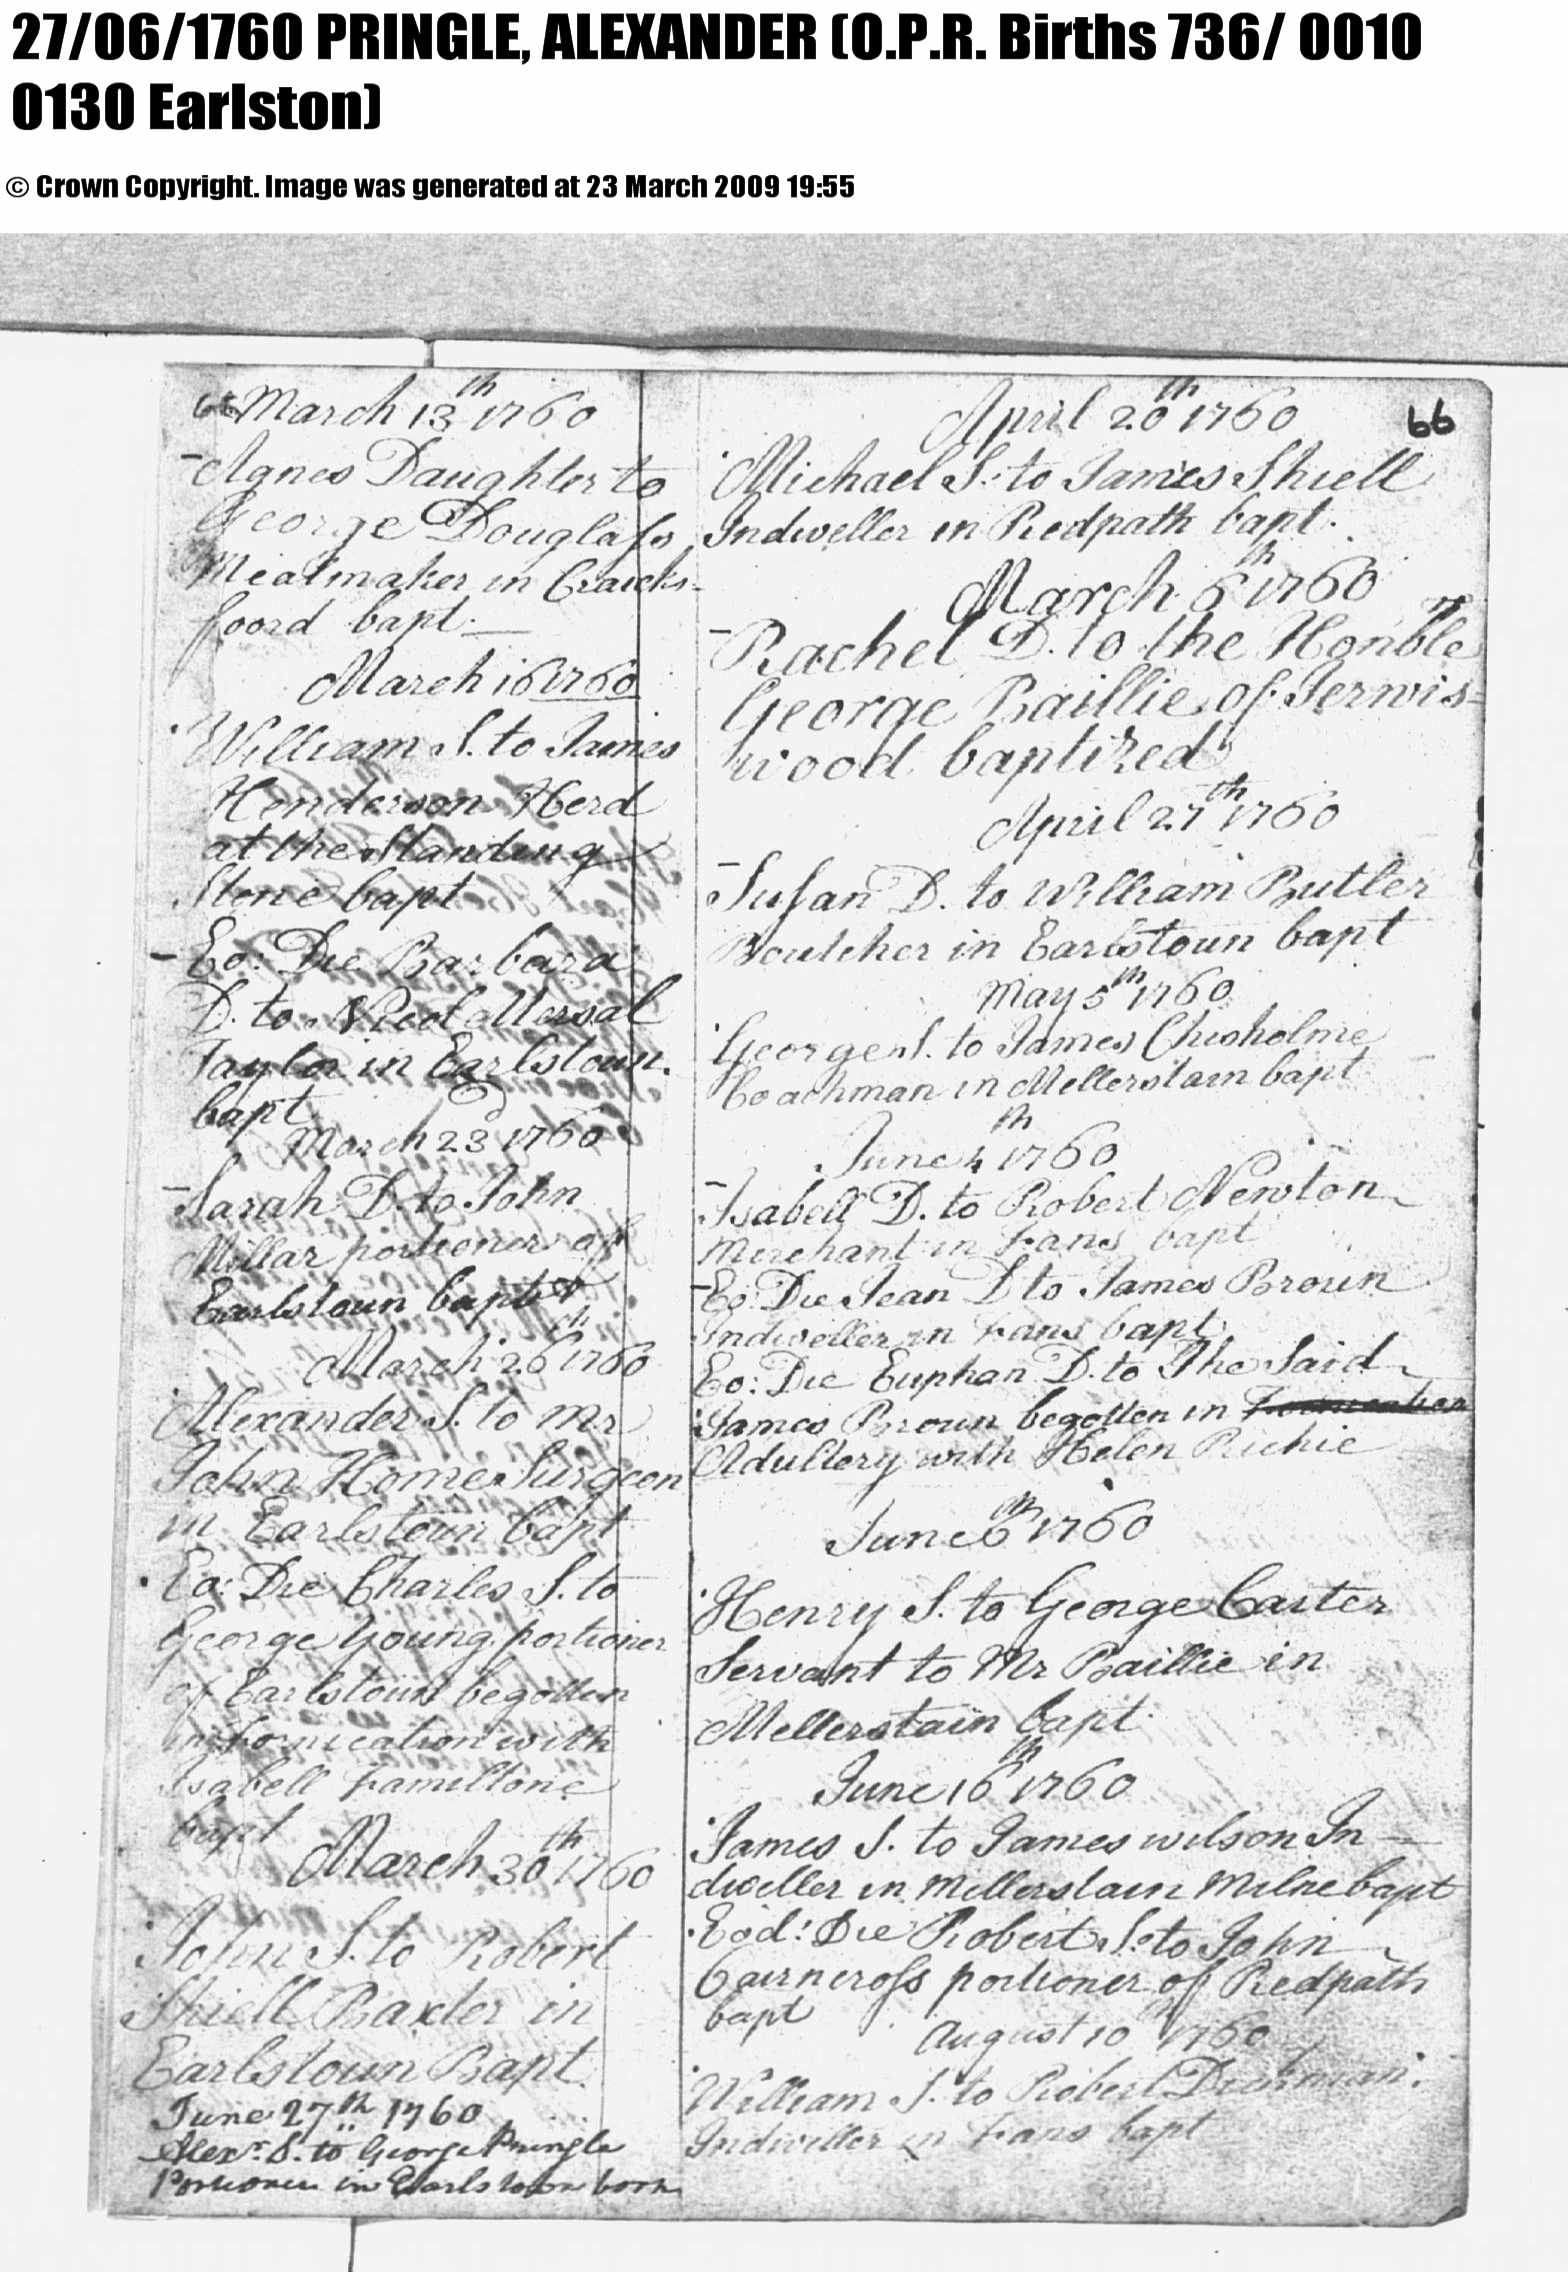 27/06/1760 PRINGLE, ALEXANDER (O.P.R. Births 736/ 0010
0130 Earlston)
© Crown Copyright. Image was generated at 23 March 2009 19:55
March 13th 1760
Agnes Daughter to
George Douglass
Mealmaker in Craicks-
foord bapt.
March 16 1760
William S. to James
Henderson Herd
at the Standing
Stone bapt
Eo: Die Barbara
D. to Nicol Mersal
Taylor in Earlstoun.
bapt
March 23d 1760
Sarah D. to John
Millar portioner of
Earlstoun bapt
March 26th 1760
Alexander S. to Mr
John Home Surgeon
in Earlstoun bapt
Eo: Die Charles S. to
George Young portioner
of Earlstoun begotten
in fornication with
Isabell Hamiltone
bapt
March 30th 1760
John S. to Robert
Shiell Baxter in
Earlstoun Bapt.
June 27th 1760
Alexr. S. to George Pringle
Portioner in Earlstown born
66
April 20th 1760
Michael S. to James Shiell
Indweller in Redpath bapt.
March 6th 1760
Rachel D. to the Honble
George Baillie of Jerwis-
wood baptized
April 27th 1760
Susan D. to William Butler
Boutcher in Earlstoun bapt
May 5th 1760
George S. to James Chisholme
Coachman in Mellerstain bapt
June 4th 1760
Isabell D. to Robert Newton
Merchant in Fans bapt
Eo: Die Jean D to James Broun
Indweller in Fans bapt
Eo: Die Euphan D. to The Said
James Broun begotten in
Adultery with Helen Richie
June 6th 1760
Henry S. to George Carter
Servant to Mr Baillie in
Mellerstain bapt.
June 16th 1760
James S. to James wilson In-
dweller in Mellerstain Milne bapt
Eod: Die Robert S. to John
Cairncross portioner of Redpath
bapt
August 10th 1760
William S. to Robert
Indweller in Fans bapt